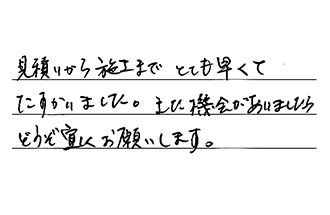 見積りから施工まで とても早くて
たすかりました。また機会がありましたら
どうぞ宜しくお願いします。